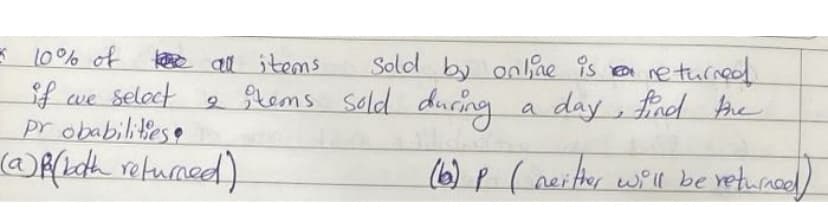 10% of all items sold by online is returned
if we select 2 items sold during a day, find the
probabilities.
(a) P(both returned) (b) P (neither will be returned)